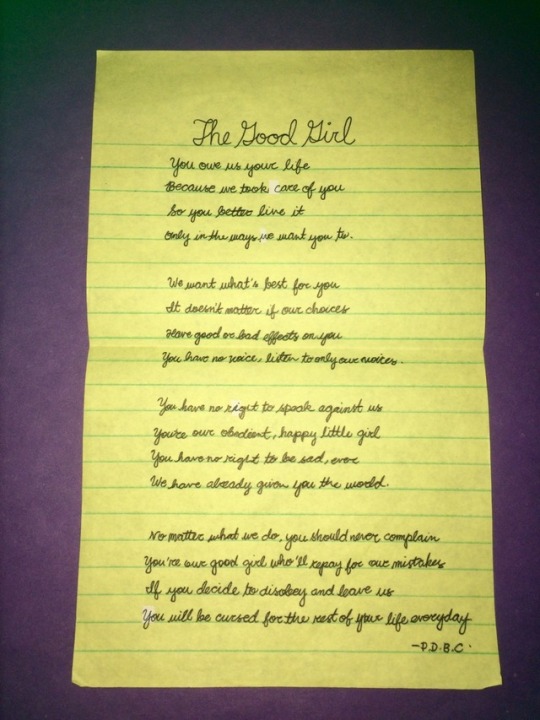 The Good Girl
You owe us your life
Because we took care of you
So you better live it
Only in the ways we want you to.
We want what's best for you
It doesn't matter if our choices
Have good or bad effects on you
You have no voice, listen to only our voices.
You have no right to speak against us
You're our obedient, happy little girl
You have no right to be sad, ever
We have already given you the world.
No matter what we do, you should never complain
You're our good girl who'll repay for our mistakes
If you decide to disobey and leave us
You will be cursed for the rest of your life everyday
-P.D.B.C.